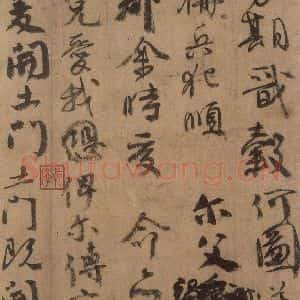 期戩穀何圖
稱兵犯順尔父
郡余時受命亦
兄愛我俾尔傳
爰開土門土門既開
Shufawang.cn